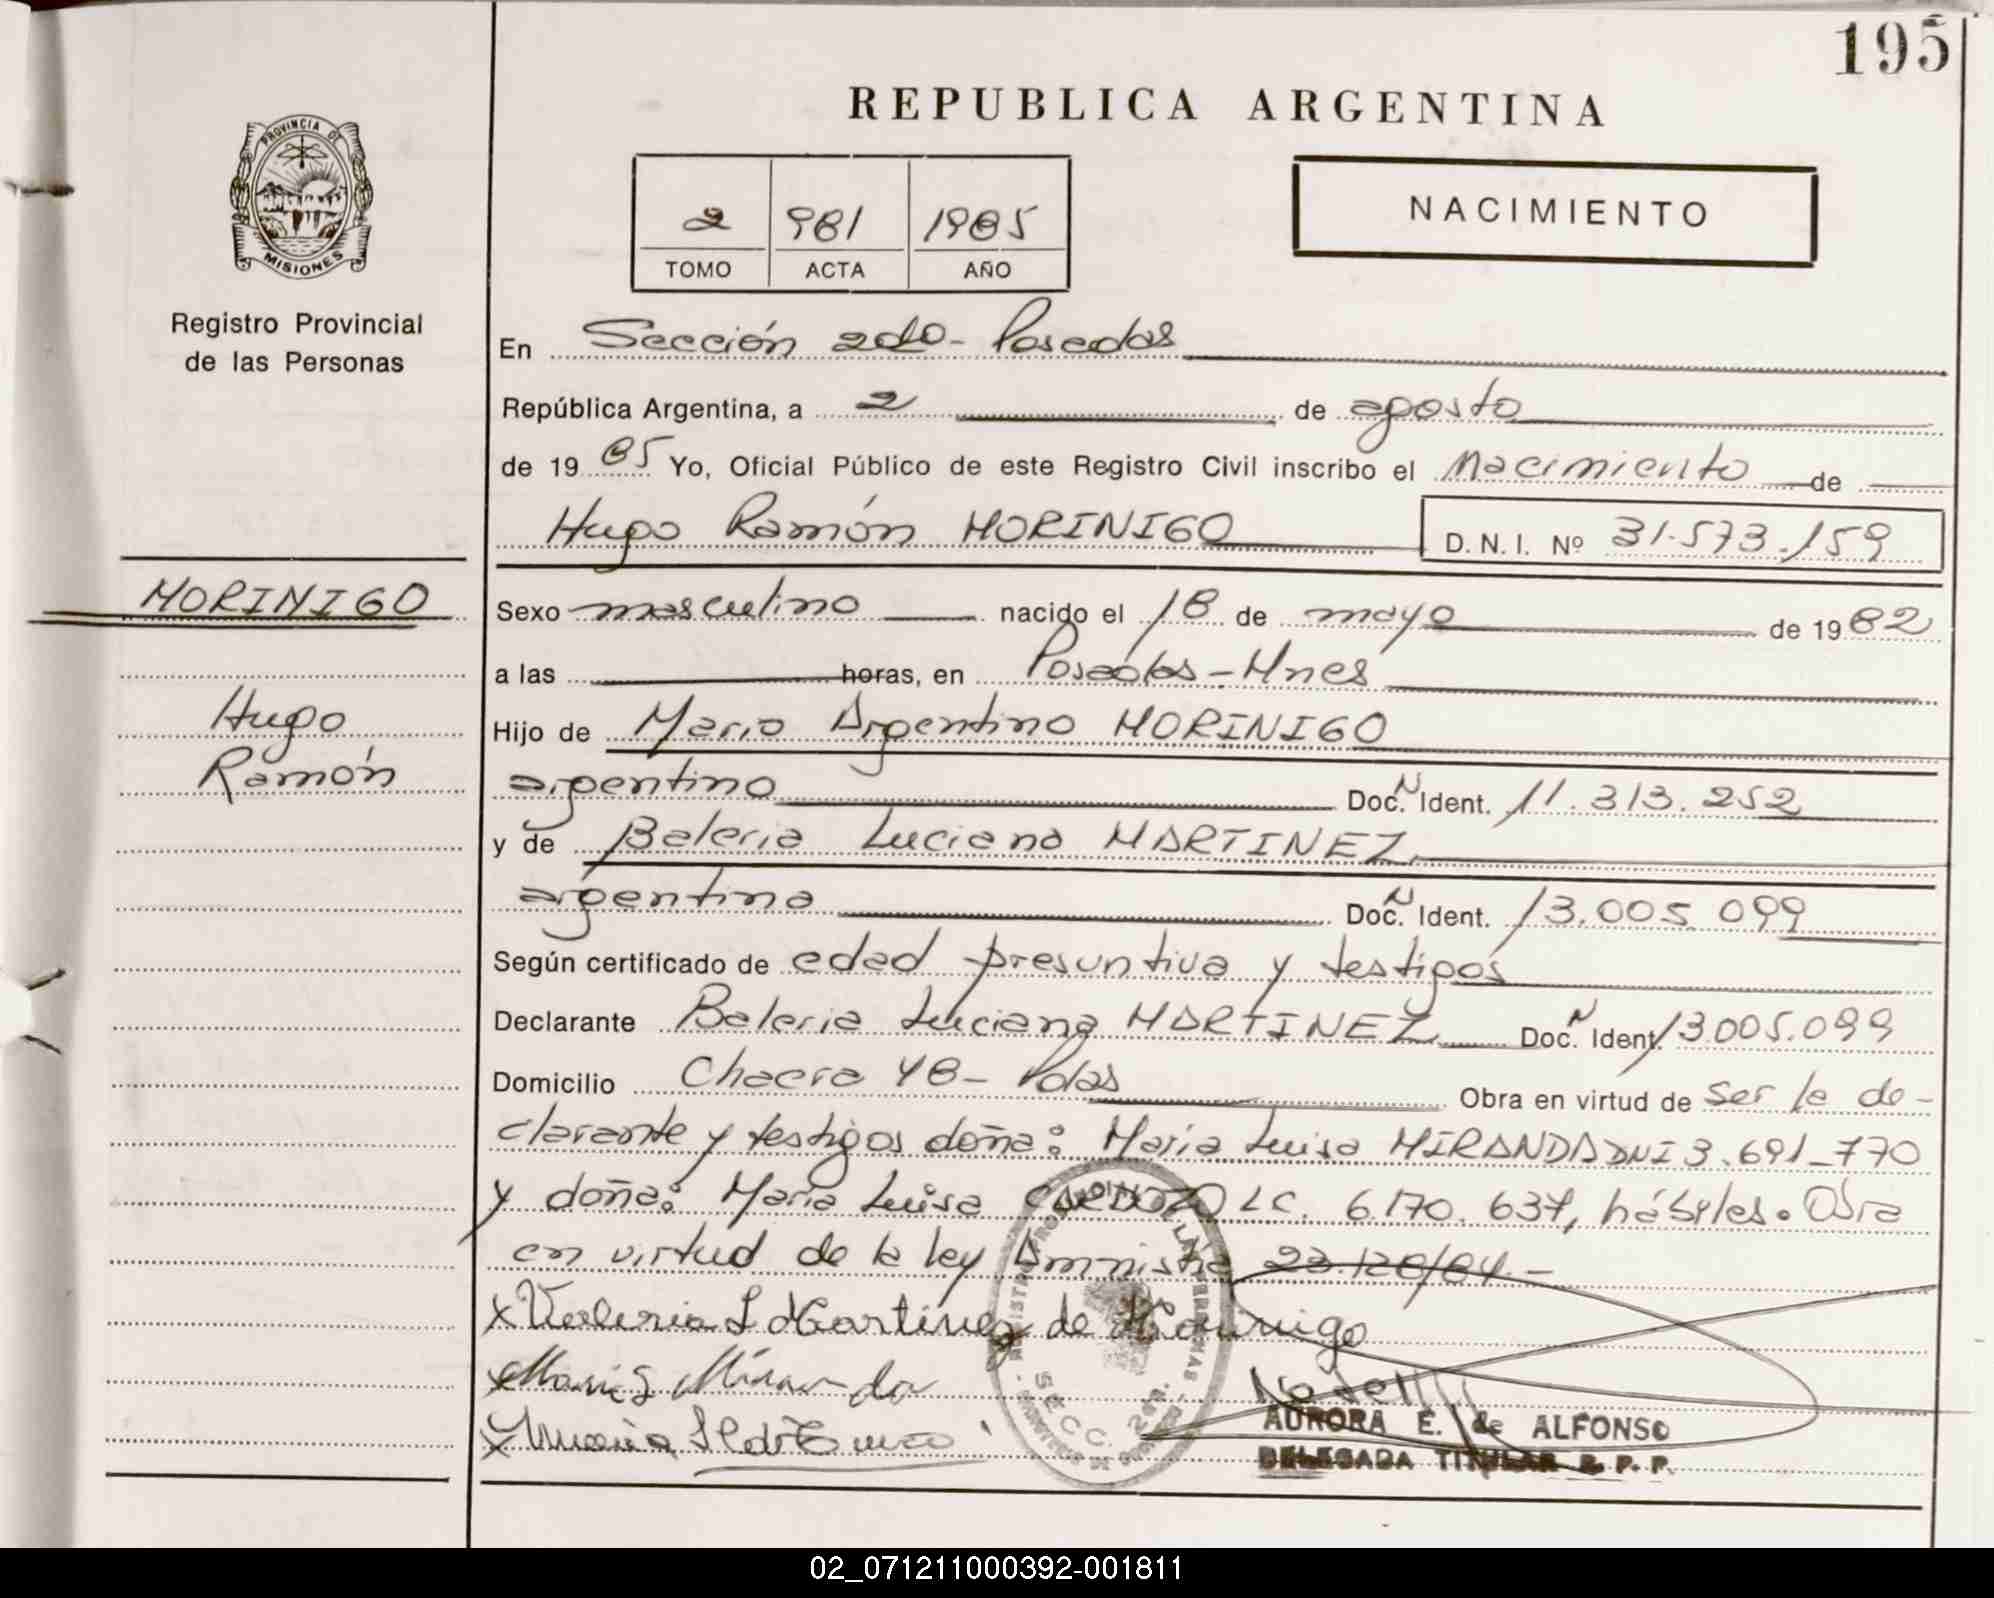 195
REPUBLICA ARGENTINA
PROVINCIA DE
MISIONES
2 981 1985
TOMO ACTA AÑO
NACIMIENTO
Registro Provincial
de las Personas
En Sección 2do- Posadas
República Argentina, a 2 de agosto
de 19 85 Yo, Oficial Público de este Registro Civil inscribo el Nacimiento de
Hugo Ramón MORINIGO D. N. I. Nº 31.573.159
MORINIGO
Hugo
Ramón
Sexo masculino nacido el 18 de mayo de 19 82
a las horas, en Posadas - Mnes
Hijo de Mario Argentino MORINIGO
argentino Doc. N Ident. 11.313.252
y de Baleria Luciana MARTINEZ
argentina Doc. N Ident. 13.005.099
Según certificado de edad presuntiva y testigos
Declarante Baleria Luciana MARTINEZ Doc. N Ident. 13.005.099
Domicilio Chacra 48 - Pdas Obra en virtud de ser la de-
clarante y testigos doña: María Luisa MIRANDA DNI 3.691.770
y doña: María Luisa LC. 6.170.637, hábiles. Obra
en virtud de la ley Amnistia 23.128/84.-
x Valeria L Martinez de Morinigo
x Maria L Miranda
x Maria
SECC. 2da.
AURORA E. de ALFONSO
DELEGADA TITULAR R. P. P.
02_071211000392-001811